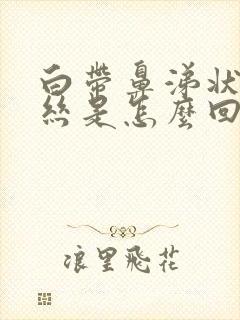 白带鼻涕状
丝是怎麼回
浪里飛花